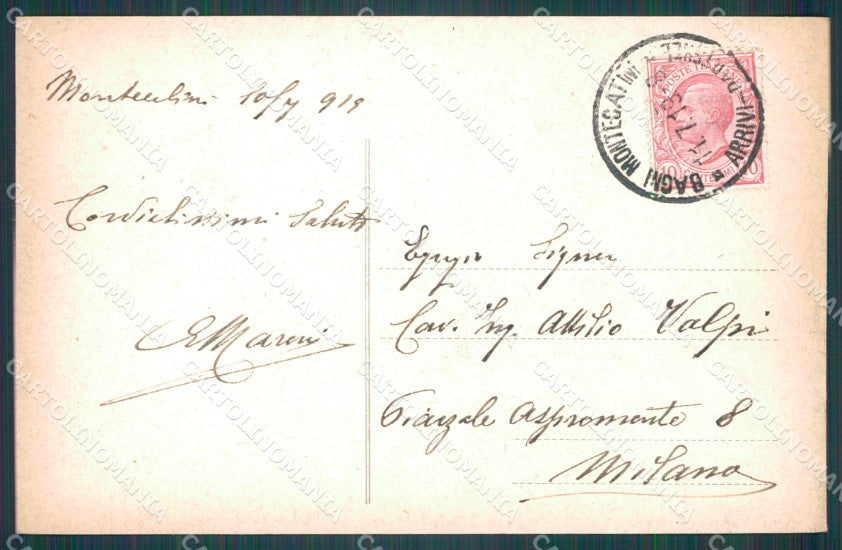 Montecatini 10/7 919
Cordialissimi Saluti
Egregio Signor
Cav. Ing. Attilio Volpi
Piazzale Aspromonte 8
Milano
BAGNI MONTECATINI
ARRIVI-PARTENZE
11.7.19
POSTE ITALIANE
10 CENTESIMI 10
CARTOLINOMANIA